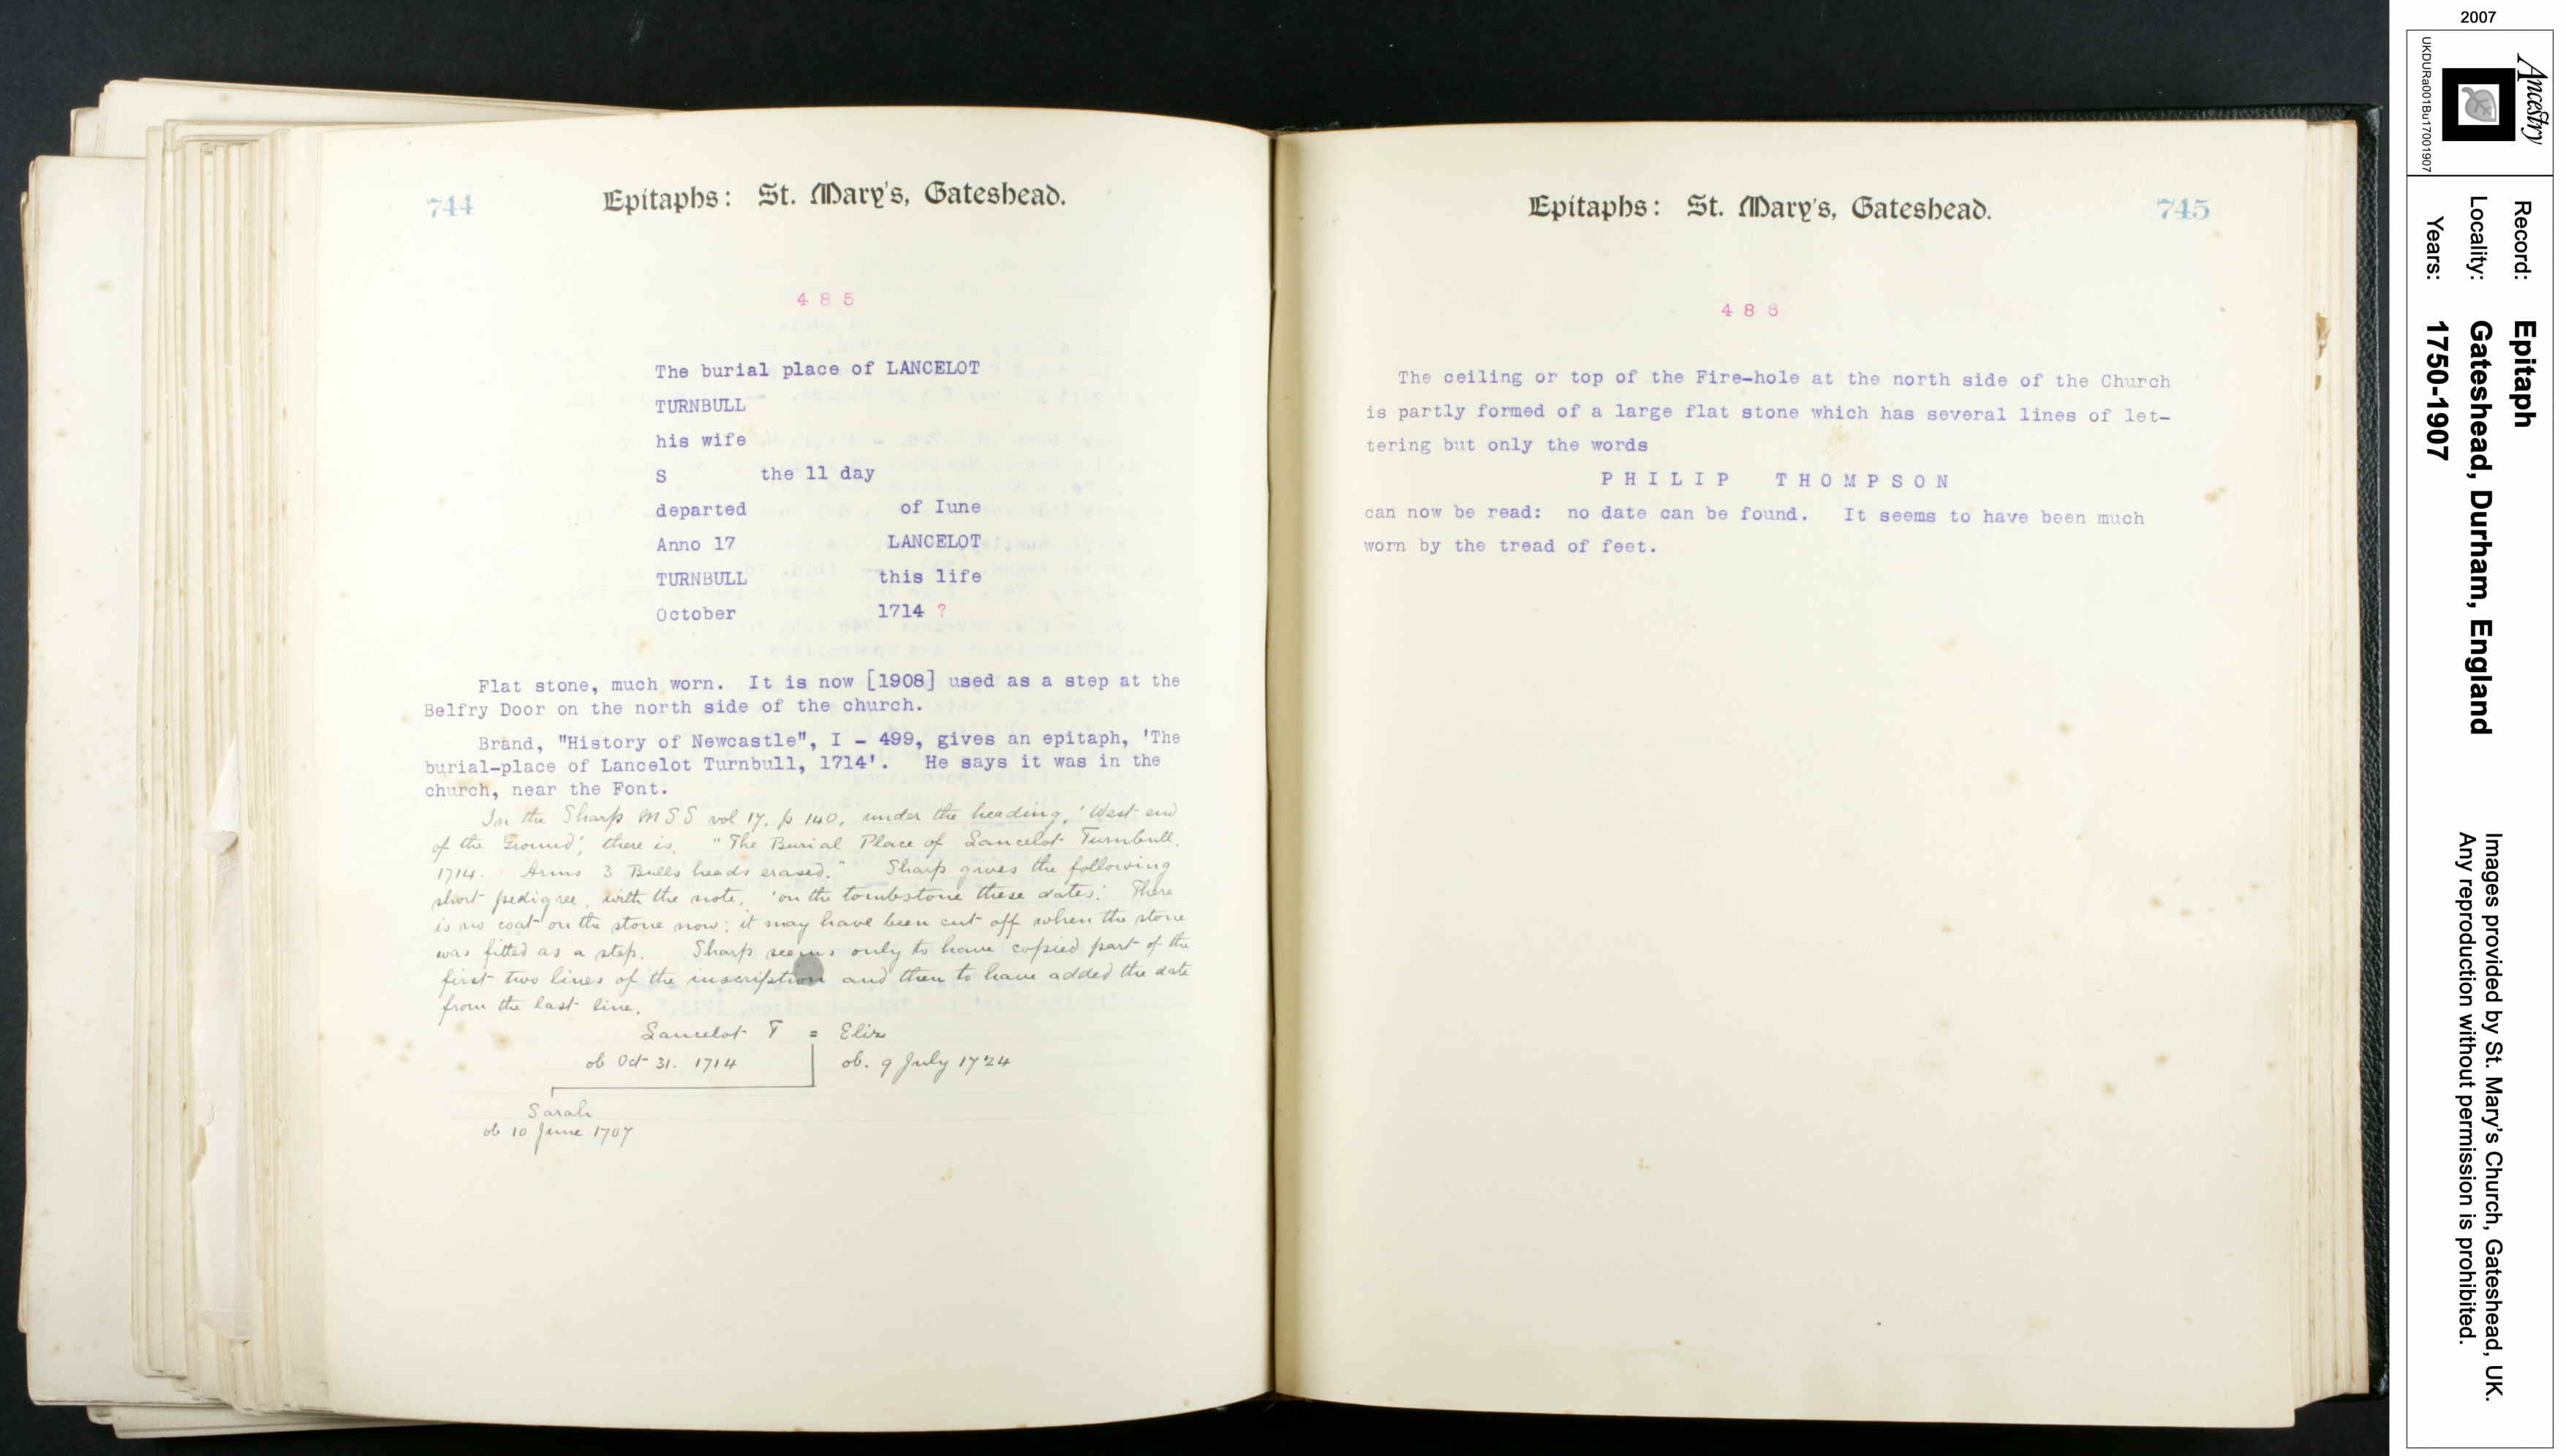 744
Epitaphs: St. Mary's, Gateshead.
4 8 5
The burial place of LANCELOT
TURNBULL
his wife
S the 11 day
departed of Iune
Anno 17 LANCELOT
TURNBULL this life
October 1714 ?
Flat stone, much worn. It is now [1908] used as a step at the
Belfry Door on the north side of the church.
Brand, "History of Newcastle", I - 499, gives an epitaph, 'The
burial-place of Lancelot Turnbull, 1714'. He says it was in the
church, near the Font.
In the Sharp MSS vol 17, p 140, under the heading, 'West end
of the Ground', there is, "The Burial Place of Lancelot Turnbull,
1714. Arms 3 Bulls heads erased." Sharp gives the following
short pedigree, with the note, 'on the tombstone these dates.' There
is no coat on the stone now; it may have been cut off when the stone
was fitted as a step. Sharp seems only to have copied part of the
first two lines of the inscription and then to have added the date
from the last line.
Lancelot T = Eliz
ob Oct 31. 1714 ob. 9 July 1724
Sarah
ob 10 June 1707
Epitaphs: St. Mary's, Gateshead.
745
4 8 6
The ceiling or top of the Fire-hole at the north side of the Church
is partly formed of a large flat stone which has several lines of let-
tering but only the words
P H I L I P T H O M P S O N
can now be read: no date can be found. It seems to have been much
worn by the tread of feet.
2007
Ancestry
UKDURa001Bu17001907
Record: Epitaph
Locality: Gateshead, Durham, England
Years: 1750-1907
Images provided by St. Mary's Church, Gateshead, UK.
Any reproduction without permission is prohibited.